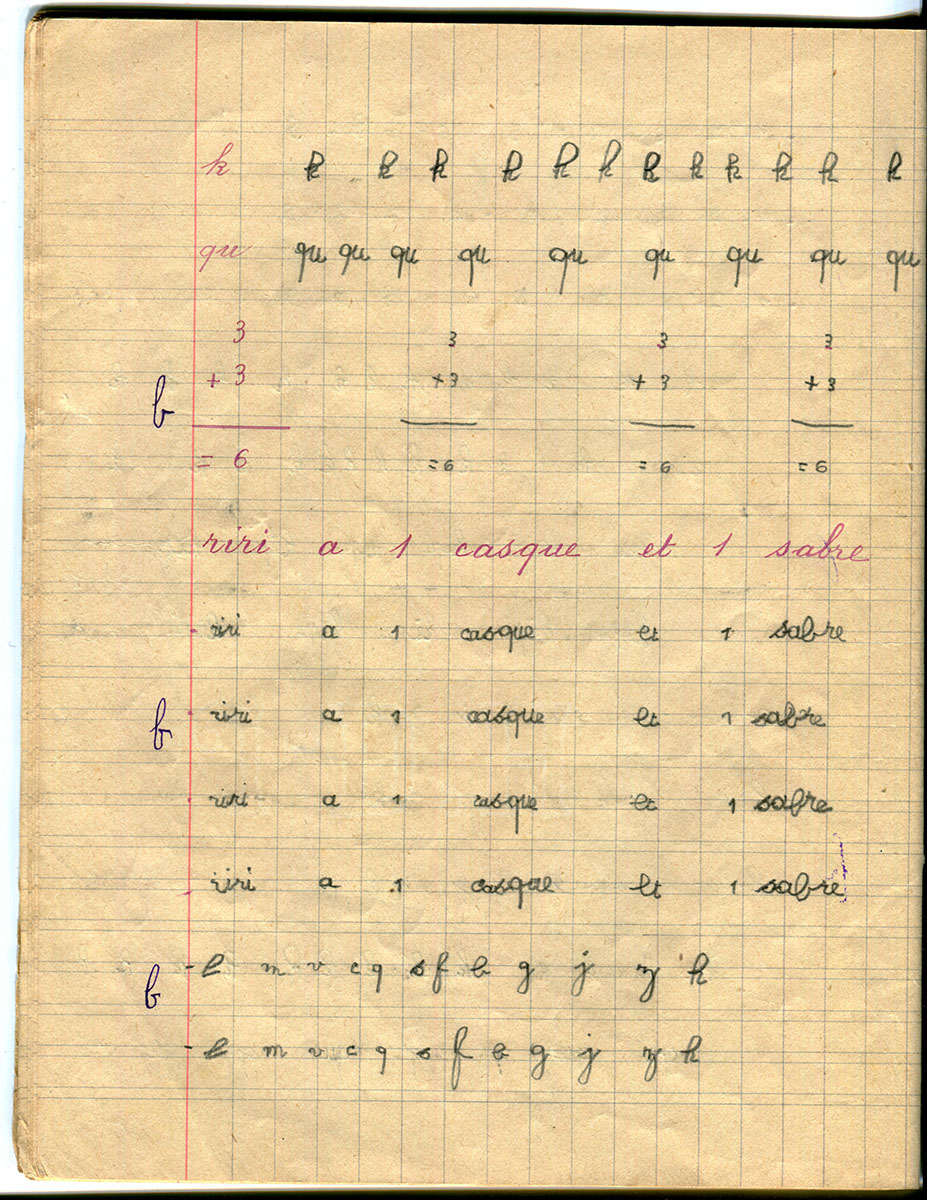 k k k k k k k k k k k k k
qu qu qu qu qu qu qu qu qu qu
3 3 3 3
b + 3 +3 + 3 + 3
= 6 = 6 = 6 = 6
riri a 1 casque et 1 sabre
riri a 1 casque et 1 sabre
b riri a 1 casque et 1 sabre
riri a 1 casque et 1 sabre
riri a 1 casque et 1 sabre
b - l m v c q s f b g j z k
- l m v c q s f b g j z k